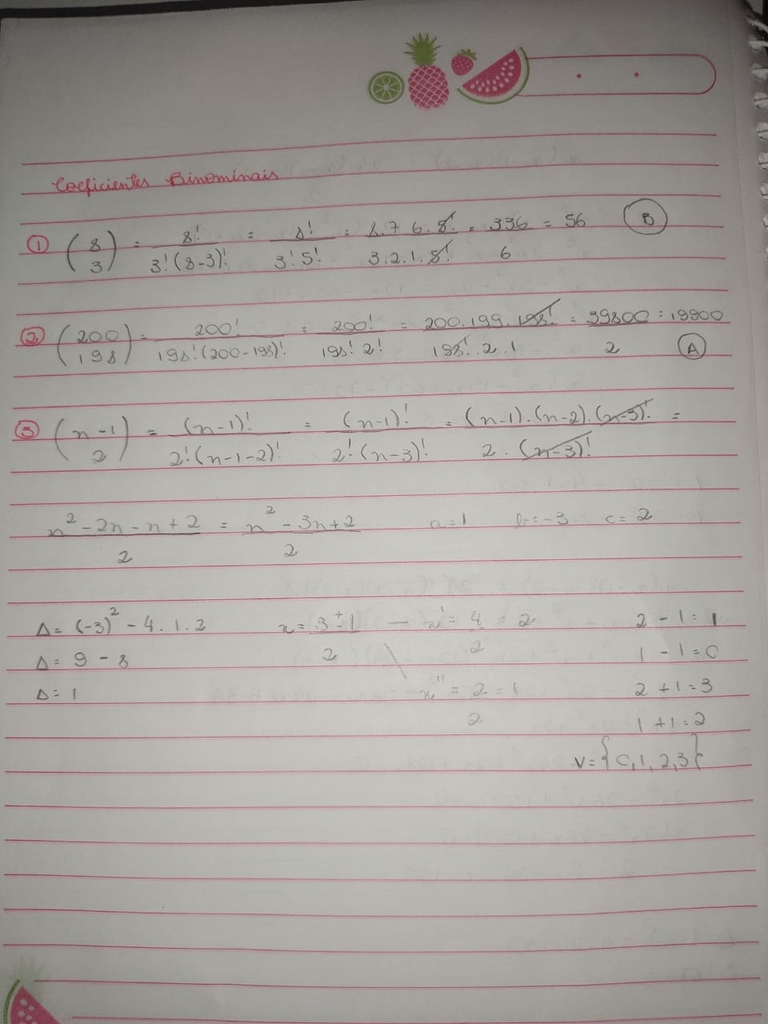 Coeficientes Binominais
① (8 3) = 8! / 3!(8-3)! = 8! / 3!5! = 8.7.6.5! / 3.2.1.5! = 336 / 6 = 56 (B)
② (200 198) = 200! / 198!(200-198)! = 200! / 198!2! = 200.199.198! / 198!.2.1 = 39800 / 2 = 19900 (A)
③ (n-1 2) = (n-1)! / 2!(n-1-2)! = (n-1)! / 2!(n-3)! = (n-1).(n-2).(n-3)! / 2.(n-3)! =
n² - 2n - n + 2 / 2 = n² - 3n + 2 / 2 a=1 b=-3 c=2
Δ= (-3)² - 4.1.2 x = 3 ± 1 / 2 — x' = 4 / 2 = 2 2 - 1 = 1
Δ= 9 - 8 1 - 1 = 0
Δ= 1 x'' = 2 / 2 = 1 2 + 1 = 3
1 + 1 = 2
V = {0,1,2,3}